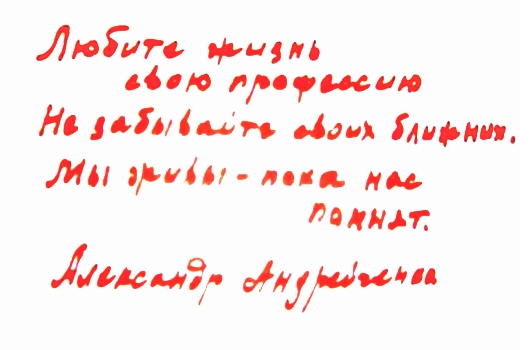 Любите жизнь
свою профессию
Не забывайте своих ближних.
Мы живы - пока нас
помнят.
Александр Андрейченко